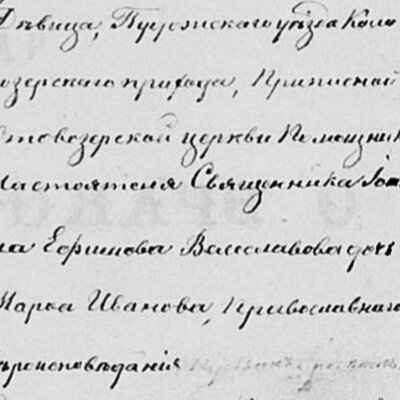 Дѣвица, Пудожскаго уѣзда Коло
озерскаго прихода, Приписной
товозерской церкви Помощник
Настоятеля Священника Іоан
на Ефимова Венеславова дочь
Марѳа Иванова, Православнаго
вѣроисповѣданія